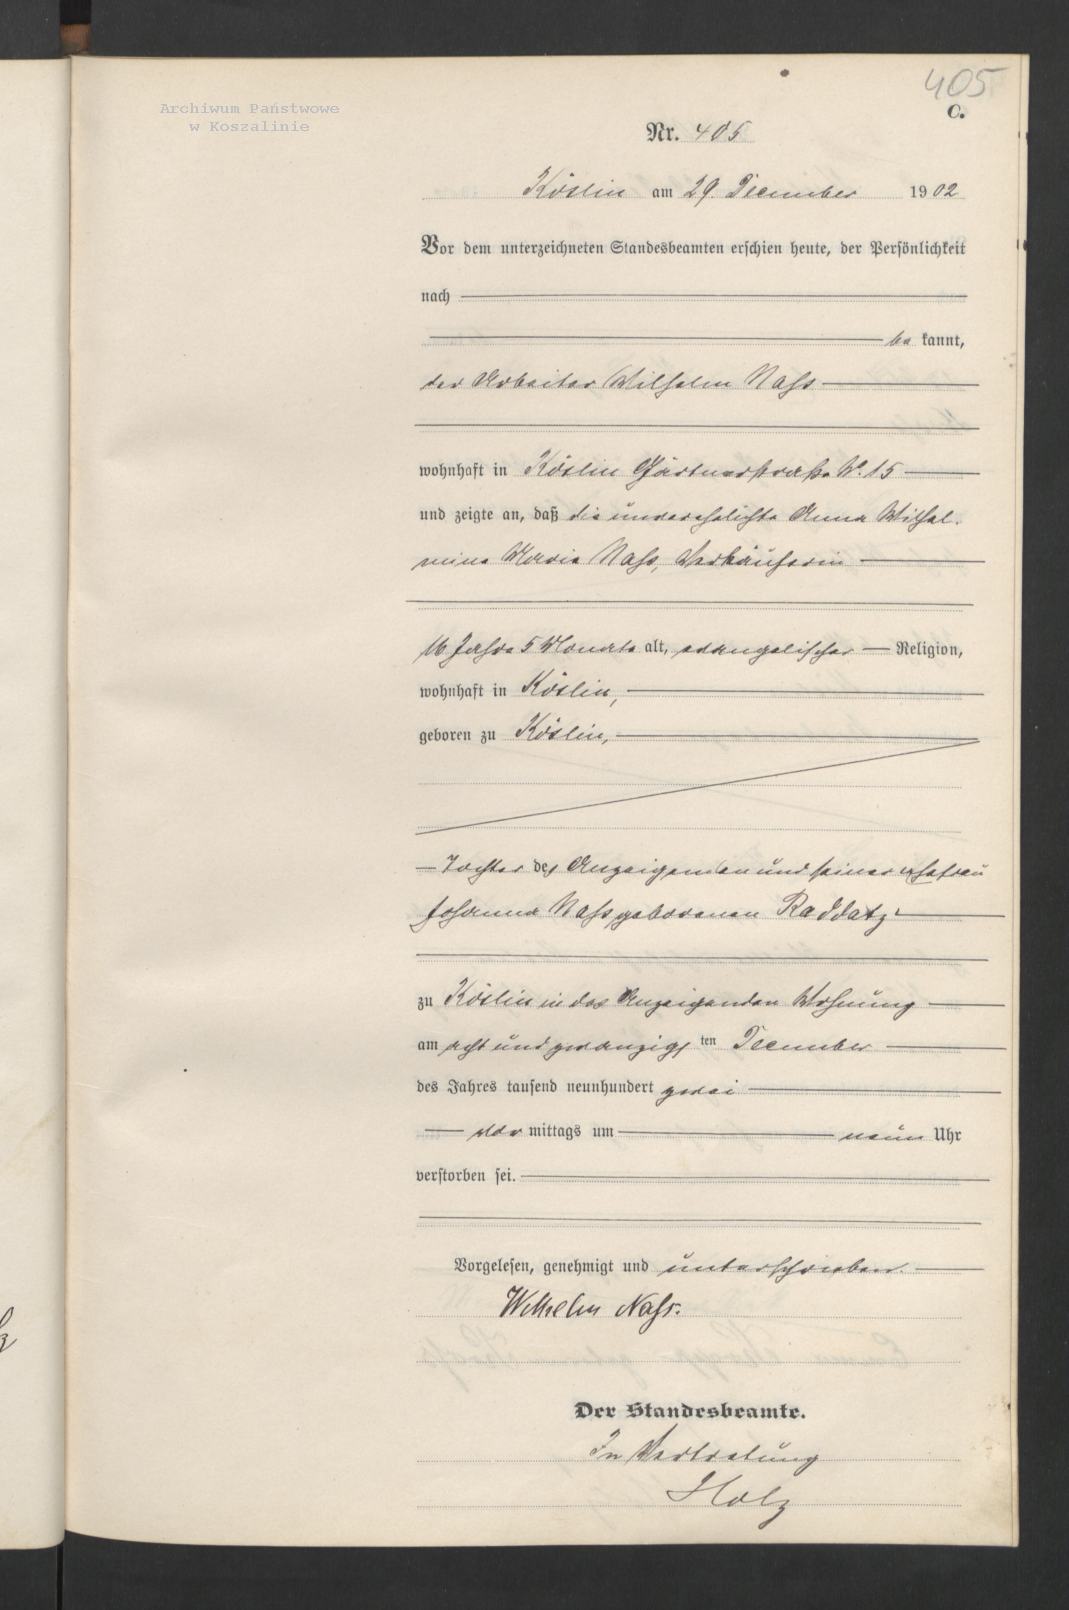 405
Archiwum Państwowe
w Koszalinie
C.
Nr. 405
Köslin am 29. December 1902
Vor dem unterzeichneten Standesbeamten erschien heute, der Persönlichkeit
nach
be kannt,
der Arbeiter Wilhelm Nass
wohnhaft in Köslin Gärtnerstraße No. 15
und zeigte an, daß die unverehelichte Anna Wilhel-
mine Marie Nass, Verkäuferin
16 Jahre 5 Monate alt, evangelischer Religion,
wohnhaft in Köslin,
geboren zu Köslin,
Tochter des Anzeigenden und seiner Ehefrau
Johanna Nass geborenen Raddatz
zu Köslin in des Anzeigenden Wohnung
am acht und zwanzigsten December
des Jahres tausend neunhundert zwei
vor mittags um neun Uhr
verstorben sei.
Vorgelesen, genehmigt und unterschrieben.
Wilhelm Nass.
Der Standesbeamte.
In Vertretung
Holz